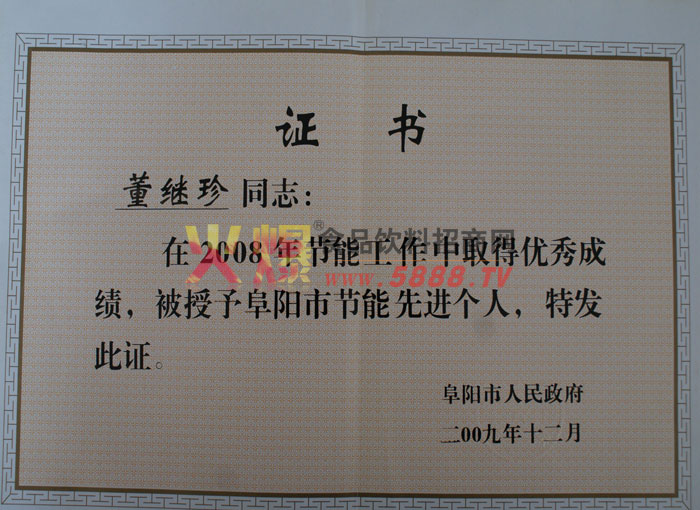 证 书
董继珍 同志：
火爆®食品饮料招商网
www.5888.TV
在2008年节能工作中取得优秀成
绩，被授予阜阳市节能先进个人，特发
此证。
阜阳市人民政府
二00九年十二月